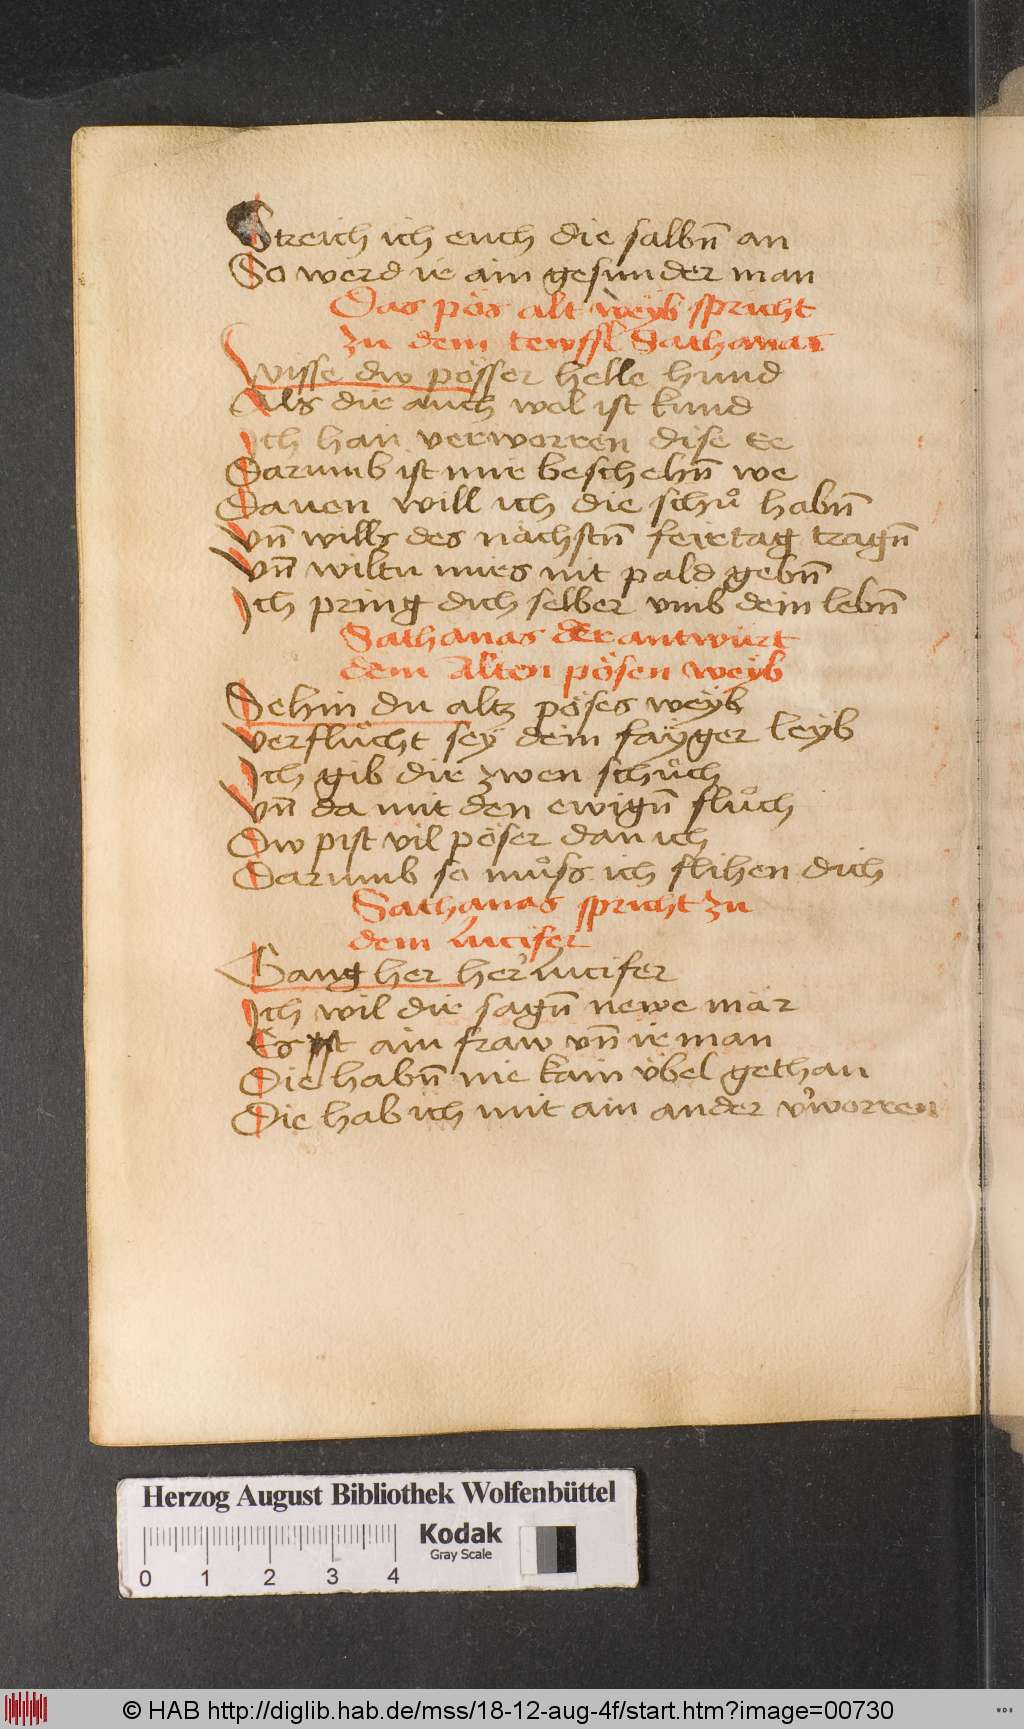 Streich ich euch die salbn̄ an
So werd ir ain gesunder man
Das pös alt weyb spricht
zu dem tewffl Sathanas
Wisse dw pösser helle hund
Als dir auch wol ist kund
Ich han verworren dise Ee
Darumb ist mir beschehn̄ we
Davon will ich die schů habn̄
Vn̄ wills des nächstn̄ feirtag tragn̄
Vn̄ wiltu mirs nit pald gebn̄
Ich pring dich selber vmb dein lebn̄
Sathanas der antwürt
dem Alten pösen weyb
Sehin du altz pöses weÿb
verflůcht sey dein fäyger leÿb
Ich gib dir zwen schůch
Vn̄ da mit den ewign̄ flůch
Dw pist vil pöser dan ich
Darumb so můss ich flihen dich
Sathanas spricht zu
dem Lucifer
Gang her her Lucifer
Ich wil dir sagn̄ newe mär
Es ist ain fraw vn̄ ir man
Die habn̄ nie kain übel gethan
Die hab ich mit ain ander v'worren
Herzog August Bibliothek Wolfenbüttel
Kodak
Gray Scale
0 1 2 3 4
© HAB http://diglib.hab.de/mss/18-12-aug-4f/start.htm?image=00730